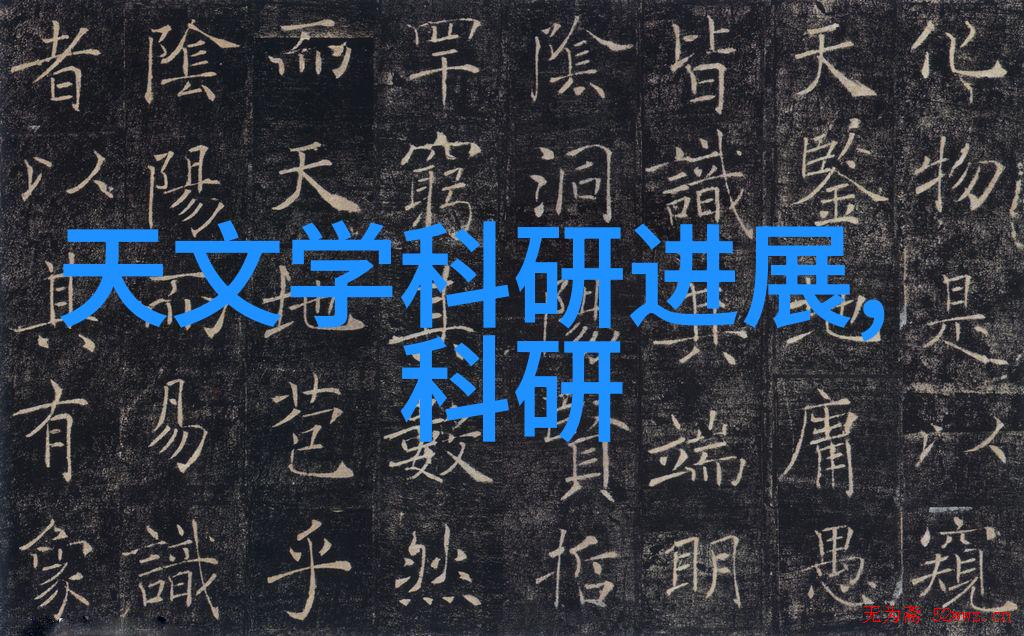 化物是以窺
天鑒地庸愚
皆識其端明
陰洞陽賢哲
罕窮其數然
而天地苞乎
陰陽而易識
者以其有象
天文学科研进展,
科研
无为斋 52wwz.cn